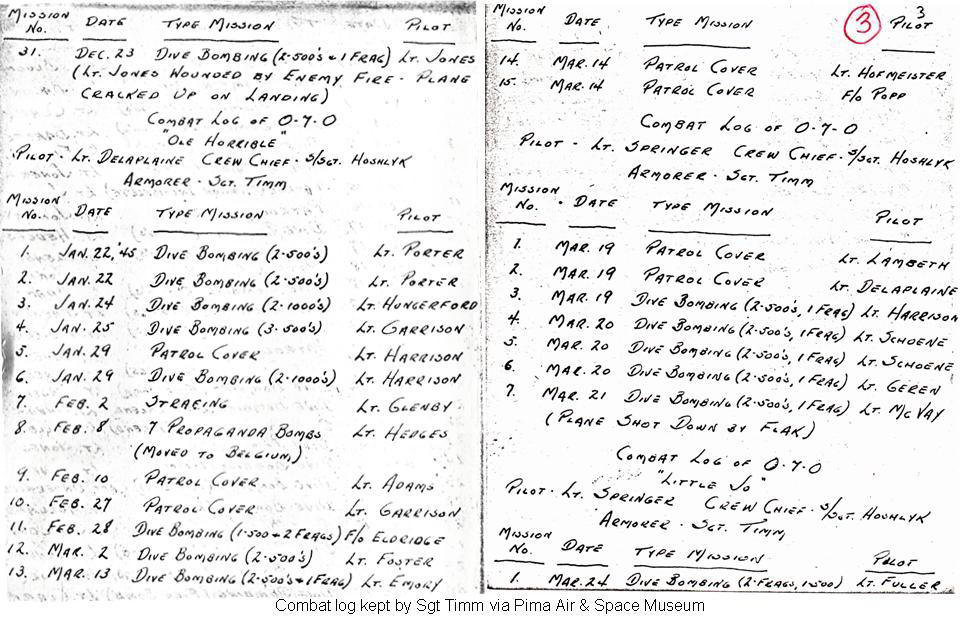 MISSION No. DATE TYPE MISSION PILOT
31. DEC. 23 DIVE BOMBING (2-500's & 1 FRAG) LT. JONES
(LT. JONES WOUNDED BY ENEMY FIRE - PLANE
CRACKED UP ON LANDING)
COMBAT LOG OF O-7-O
"OLE HORRIBLE"
PILOT - LT. DELAPLAINE CREW CHIEF - S/SGT. HOSHLYK
ARMORER - SGT. TIMM
MISSION No. DATE TYPE MISSION PILOT
1. JAN. 22, '45 DIVE BOMBING (2-500's) LT. PORTER
2. JAN. 22 DIVE BOMBING (2-500's) LT. PORTER
3. JAN. 24 DIVE BOMBING (2-1000's) LT. HUNGERFORD
4. JAN. 25 DIVE BOMBING (3-500's) LT. GARRISON
5. JAN. 29 PATROL COVER LT. HARRISON
6. JAN. 29 DIVE BOMBING (2-1000's) LT. HARRISON
7. FEB. 2 STRAFING LT. GLENBY
8. FEB. 8 7 PROPAGANDA BOMBS LT. HEDGES
(MOVED TO BELGIUM)
9. FEB. 10 PATROL COVER LT. ADAMS
10. FEB. 27 PATROL COVER LT. GARRISON
11. FEB. 28 DIVE BOMBING (1-500 & 2 FRAGS) F/O ELDRIDGE
12. MAR. 2 DIVE BOMBING (2-500's) LT. FOSTER
13. MAR. 13 DIVE BOMBING (2-500's & 1 FRAG) LT. EMORY
3
3
MISSION No. DATE TYPE MISSION PILOT
14. MAR. 14 PATROL COVER LT. HOFMEISTER
15. MAR. 14 PATROL COVER F/O POPP
COMBAT LOG OF O-7-O
PILOT - LT. SPRINGER CREW CHIEF - S/SGT. HOSHLYK
ARMORER - SGT. TIMM
MISSION No. DATE TYPE MISSION PILOT
1. MAR. 19 PATROL COVER LT. LAMBETH
2. MAR. 19 PATROL COVER LT. DELAPLAINE
3. MAR. 19 DIVE BOMBING (2-500's, 1 FRAG) LT. HARRISON
4. MAR. 20 DIVE BOMBING (2-500's, 1 FRAG) LT. SCHOENE
5. MAR. 20 DIVE BOMBING (2-500's, 1 FRAG) LT. SCHOENE
6. MAR. 20 DIVE BOMBING (2-500's, 1 FRAG) LT. GEREN
7. MAR. 21 DIVE BOMBING (2-500's, 1 FRAG) LT. MCVAY
(PLANE SHOT DOWN BY FLAK)
COMBAT LOG OF O-7-O
"LITTLE JO"
PILOT - LT. SPRINGER CREW CHIEF - S/SGT. HOSHLYK
ARMORER - SGT. TIMM
MISSION No. DATE TYPE MISSION PILOT
1. MAR. 24 DIVE BOMBING (2-FRAGS, 1-500) LT. FULLER
Combat log kept by Sgt Timm via Pima Air & Space Museum